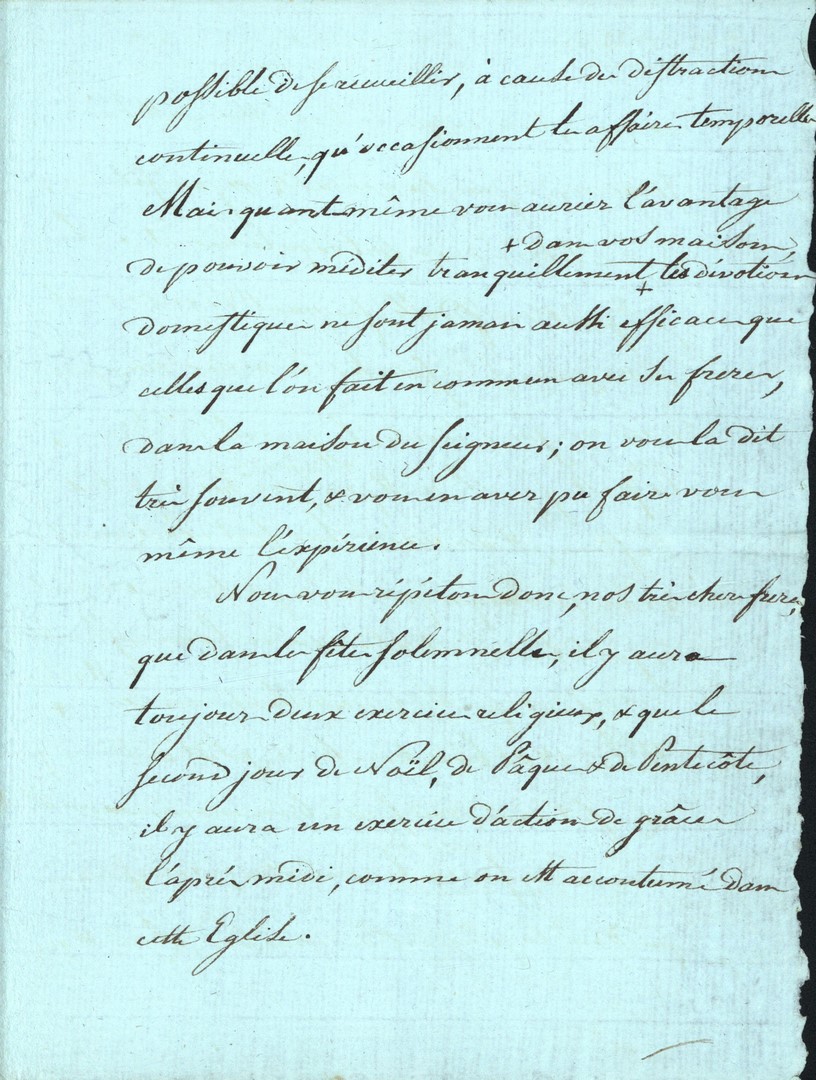 possible de se recueillir, à cause des distractions
continuelles, qu'occasionnent les affaires temporelles
Mais quant même vous auriez l'avantage
+ dans vos maisons,
de pouvoir méditer tranquillement + les dévotions
domestiques ne sont jamais aussi efficaces que
celles que l'on fait en commun avec ses freres,
dans la maison du Seigneur; on vous la dit
très souvent, & vous en avez pu faire vous
même l'expérience.
Nous vous répétons donc, nos très chers freres,
que dans les fêtes solemnelles, il y aura
toujours deux exercices religieux, & que le
second jour de Noël, de Pâques & de Pentecôte,
il y aura un exercice d'action de grâces
l'après midi, comme on est accoutumé dans
cette Eglise.